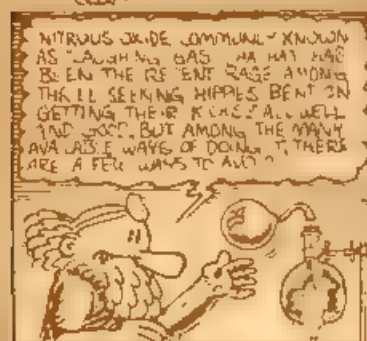 NITROUS OXIDE COMMONLY KNOWN
AS "LAUGHING GAS" HAS
BEEN THE RECENT RAGE AMONG
THRILL SEEKING HIPPIES BENT ON
GETTING THEIR KICKS. ALL WELL
AND GOOD, BUT AMONG THE MANY
AVAILABLE WAYS OF DOING IT, THERE
ARE A FEW WAYS TO AVOID